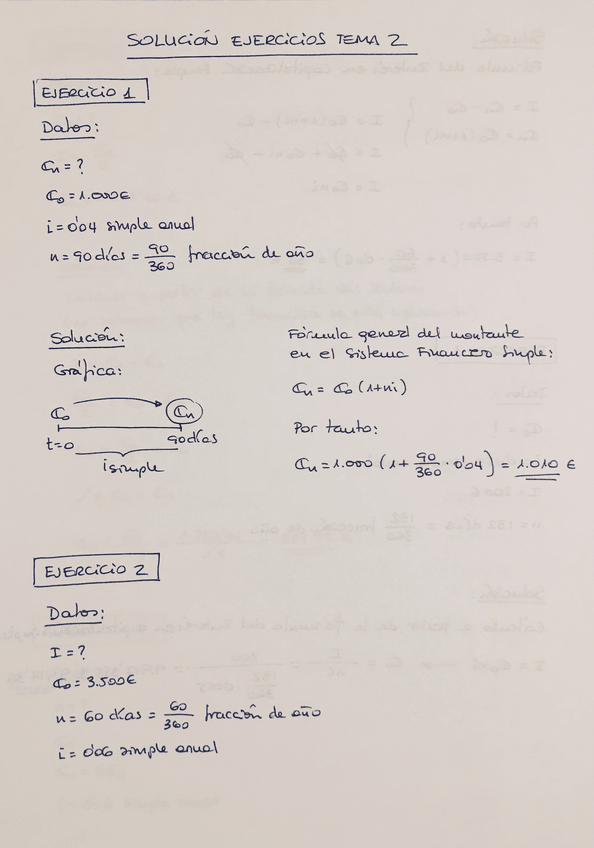 SOLUCIÓN EJERCICIOS TEMA 2
EJERCICIO 1
Datos:
Cn = ?
Co = 1.000€
i = 0'04 simple anual
n = 90 días = 90/360 fracción de año
Solución:
Gráfica:
Co Cn
t=0 90 días
i simple
Fórmula general del montante
en el Sistema Financiero Simple:
Cn = Co (1+ni)
Por tanto:
Cn = 1.000 (1 + 90/360 · 0'04) = 1.010 €
EJERCICIO 2
Datos:
I = ?
Co = 3.500€
n = 60 días = 60/360 fracción de año
i = 0'06 simple anual